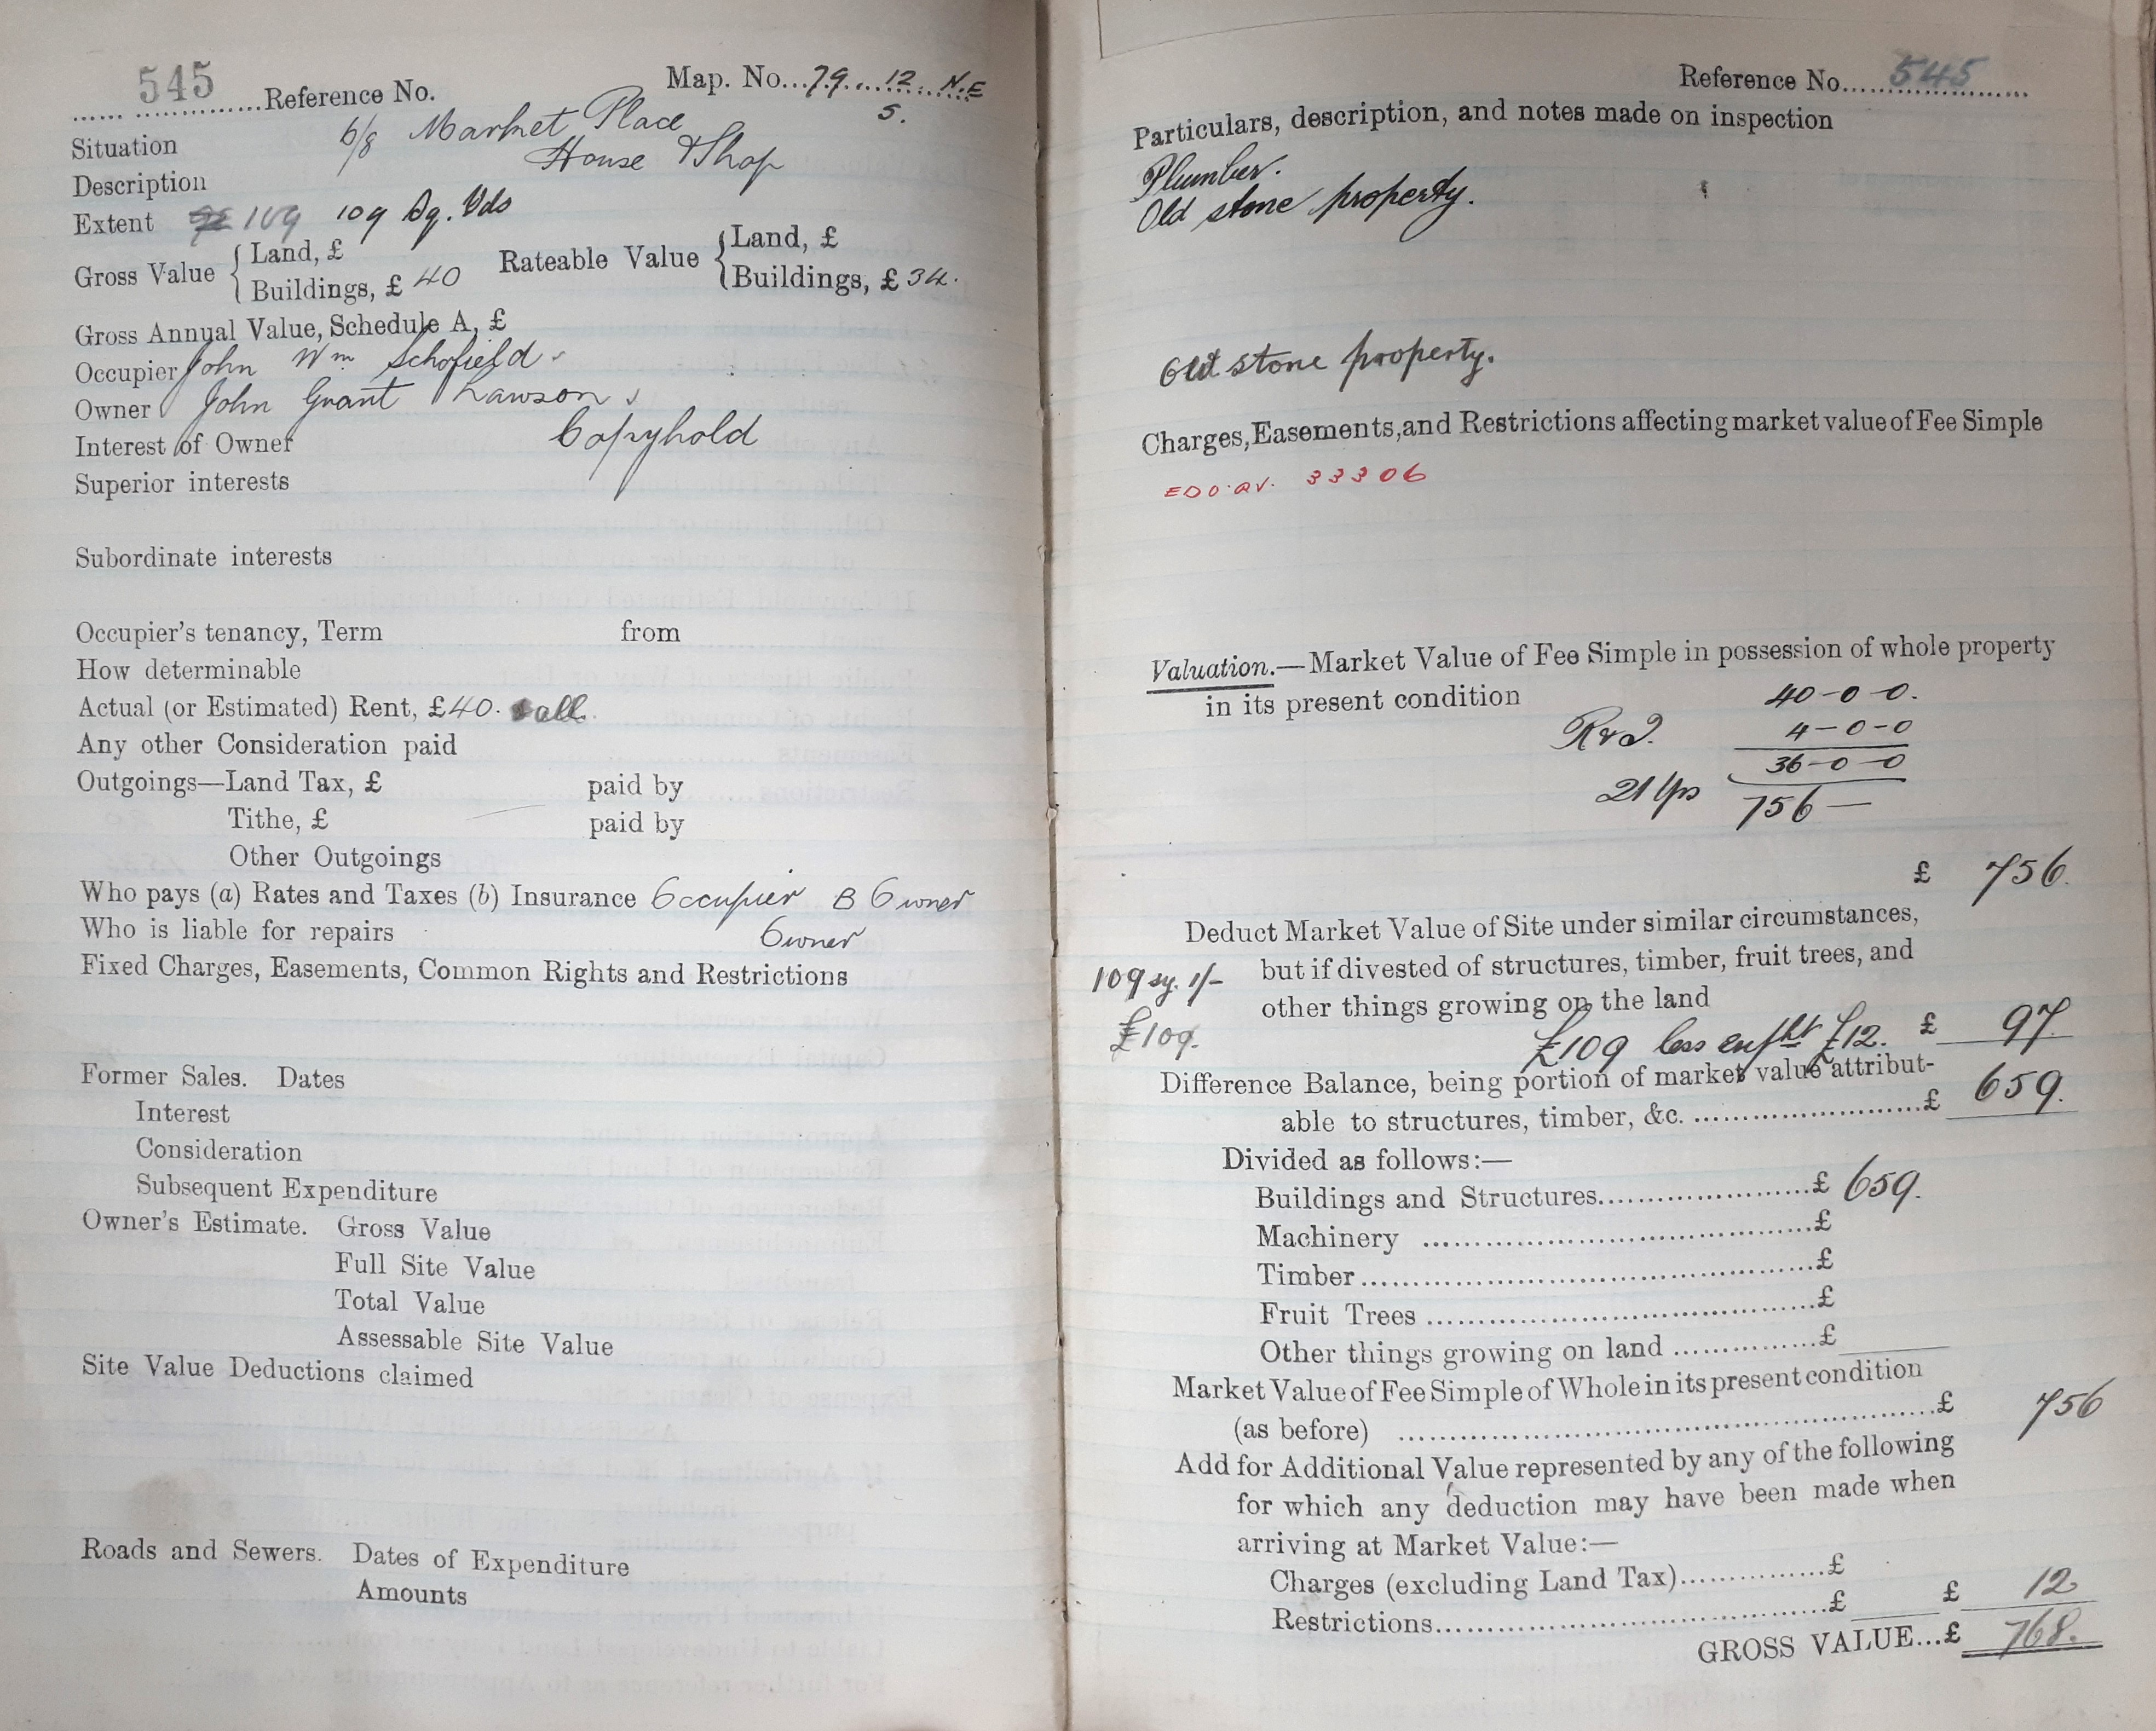 545 Reference No. Map. No. 79 12 N.E
S.
Situation 6/8 Market Place
Description House & Shop
Extent 109 109 Sq. Yds
Gross Value { Land, £ Rateable Value { Land, £
Buildings, £ 40 Buildings, £ 34.
Gross Annual Value, Schedule A, £
Occupier John Wm Schofield
Owner John Grant Lawson
Interest of Owner Copyhold
Superior interests
Subordinate interests
Occupier's tenancy, Term from
How determinable
Actual (or Estimated) Rent, £40. all
Any other Consideration paid
Outgoings—Land Tax, £ paid by
Tithe, £ paid by
Other Outgoings
Who pays (a) Rates and Taxes (b) Insurance Occupier B Owner
Who is liable for repairs Owner
Fixed Charges, Easements, Common Rights and Restrictions
Former Sales. Dates
Interest
Consideration
Subsequent Expenditure
Owner's Estimate. Gross Value
Full Site Value
Total Value
Assessable Site Value
Site Value Deductions claimed
Roads and Sewers. Dates of Expenditure
Amounts
Reference No. 545
Particulars, description, and notes made on inspection
Plumber.
Old stone property.
Old stone property.
Charges, Easements, and Restrictions affecting market value of Fee Simple
33306
Valuation.—Market Value of Fee Simple in possession of whole property
in its present condition 40-0-0.
R & I. 4-0-0
36-0-0
21 Yps 756—
£ 756.
Deduct Market Value of Site under similar circumstances,
but if divested of structures, timber, fruit trees, and
109 sy. 1/-
other things growing on the land
£109. £109 less enfht £12. £ 97.
Difference Balance, being portion of market value attribut-
able to structures, timber, &c. £ 659.
Divided as follows:—
Buildings and Structures £ 659.
Machinery £
Timber £
Fruit Trees £
Other things growing on land £
Market Value of Fee Simple of Whole in its present condition
(as before) £ 756
Add for Additional Value represented by any of the following
for which any deduction may have been made when
arriving at Market Value:—
Charges (excluding Land Tax) £
Restrictions £ £ 12
GROSS VALUE... £ 768.